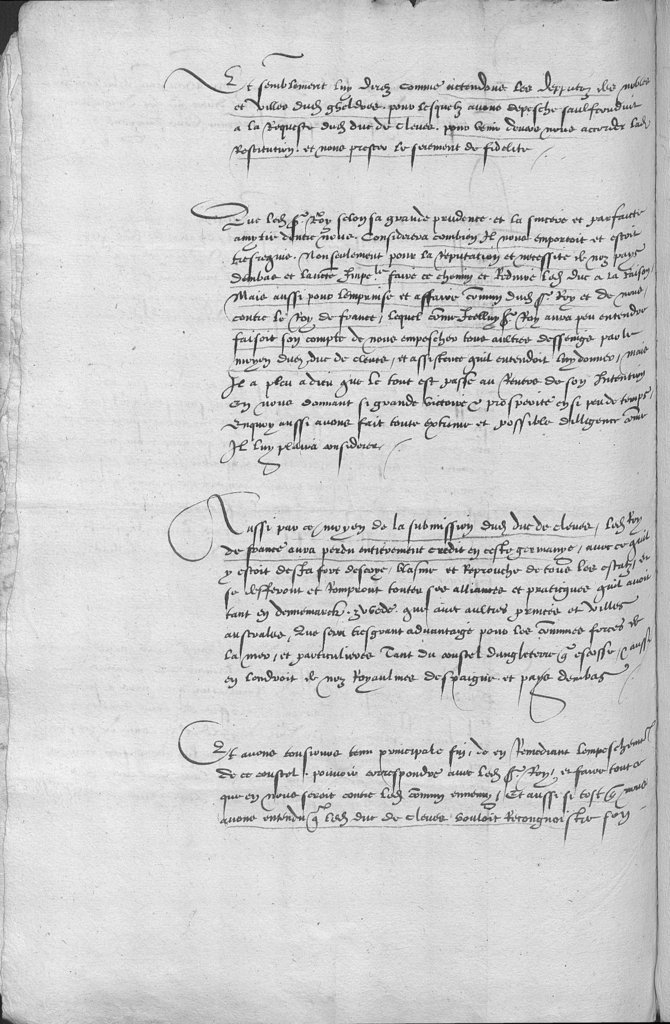 Et semblement luy direz comme actendons les depputez des nobles
et villes dud. gheldres. pour lesquelz avons depesche saulfconduit
a la Requeste dud. duc de cleves. pour venir devers nous accorder lad.
Restitution. et nous prester le serement de fidelite
Que led. sr Roy selon sa grande prudence. et la sincere et parfaicte
amytie dentre nous. Considerera combien Il nous emportoit et estoit
tresrequis. Non seulement pour la Reputation et necessite de noz pays
dembas et lauctte Impe.le faire ce chemin et Reduire led. duc a la raison
Mais aussi pour lemprinse et affaire commun dud. sr Roy et de nous,
contre le Roy de france, lequel comme Icelluy sr Roy aura peu entendre
faisoit son compte de nous empescher tous aultres desseings par le
moyen dud. duc de cleves, et assistence quil entendoit luy donner, mais
Il a pleu a dieu que le tout est passe au Revers de son Intention
En nous donnant si grande victoire & prosperite en si peu de temps,
Enquoy aussi avons fait toute extreme et possible diligence comme
Il luy plaira considerer
Aussi par ce moyen de la submission dud. duc de cleves, led. Roy
de france aura perdu entierement credit en ceste germanye, avec ce quil
y estoit desja fort descrye, blasme et Reprouche de tous les estatz, et
se defferont et Rompront toutes ses alliances et practiques quil avoit
tant en dennemarck. que avec aultres princes et villes
australes, Que sera tresgrant advantaige pour les communes forces de
la mer, et particulieres Tant du coustel dangleterre que escosse, & aussi
en lendroit de noz Royaulmes despaigne. et pays dembas
Et avons tousiours tenu principale fin, de en Remediant lempeschement
de ce coustel. pouvoir correspondre avec led. sr Roy, et faire tout ce
que en nous seroit contre led. commun ennemy, Et aussi si tost que nous
avons entendu que led. duc de cleves vouloit Recongnoistre son